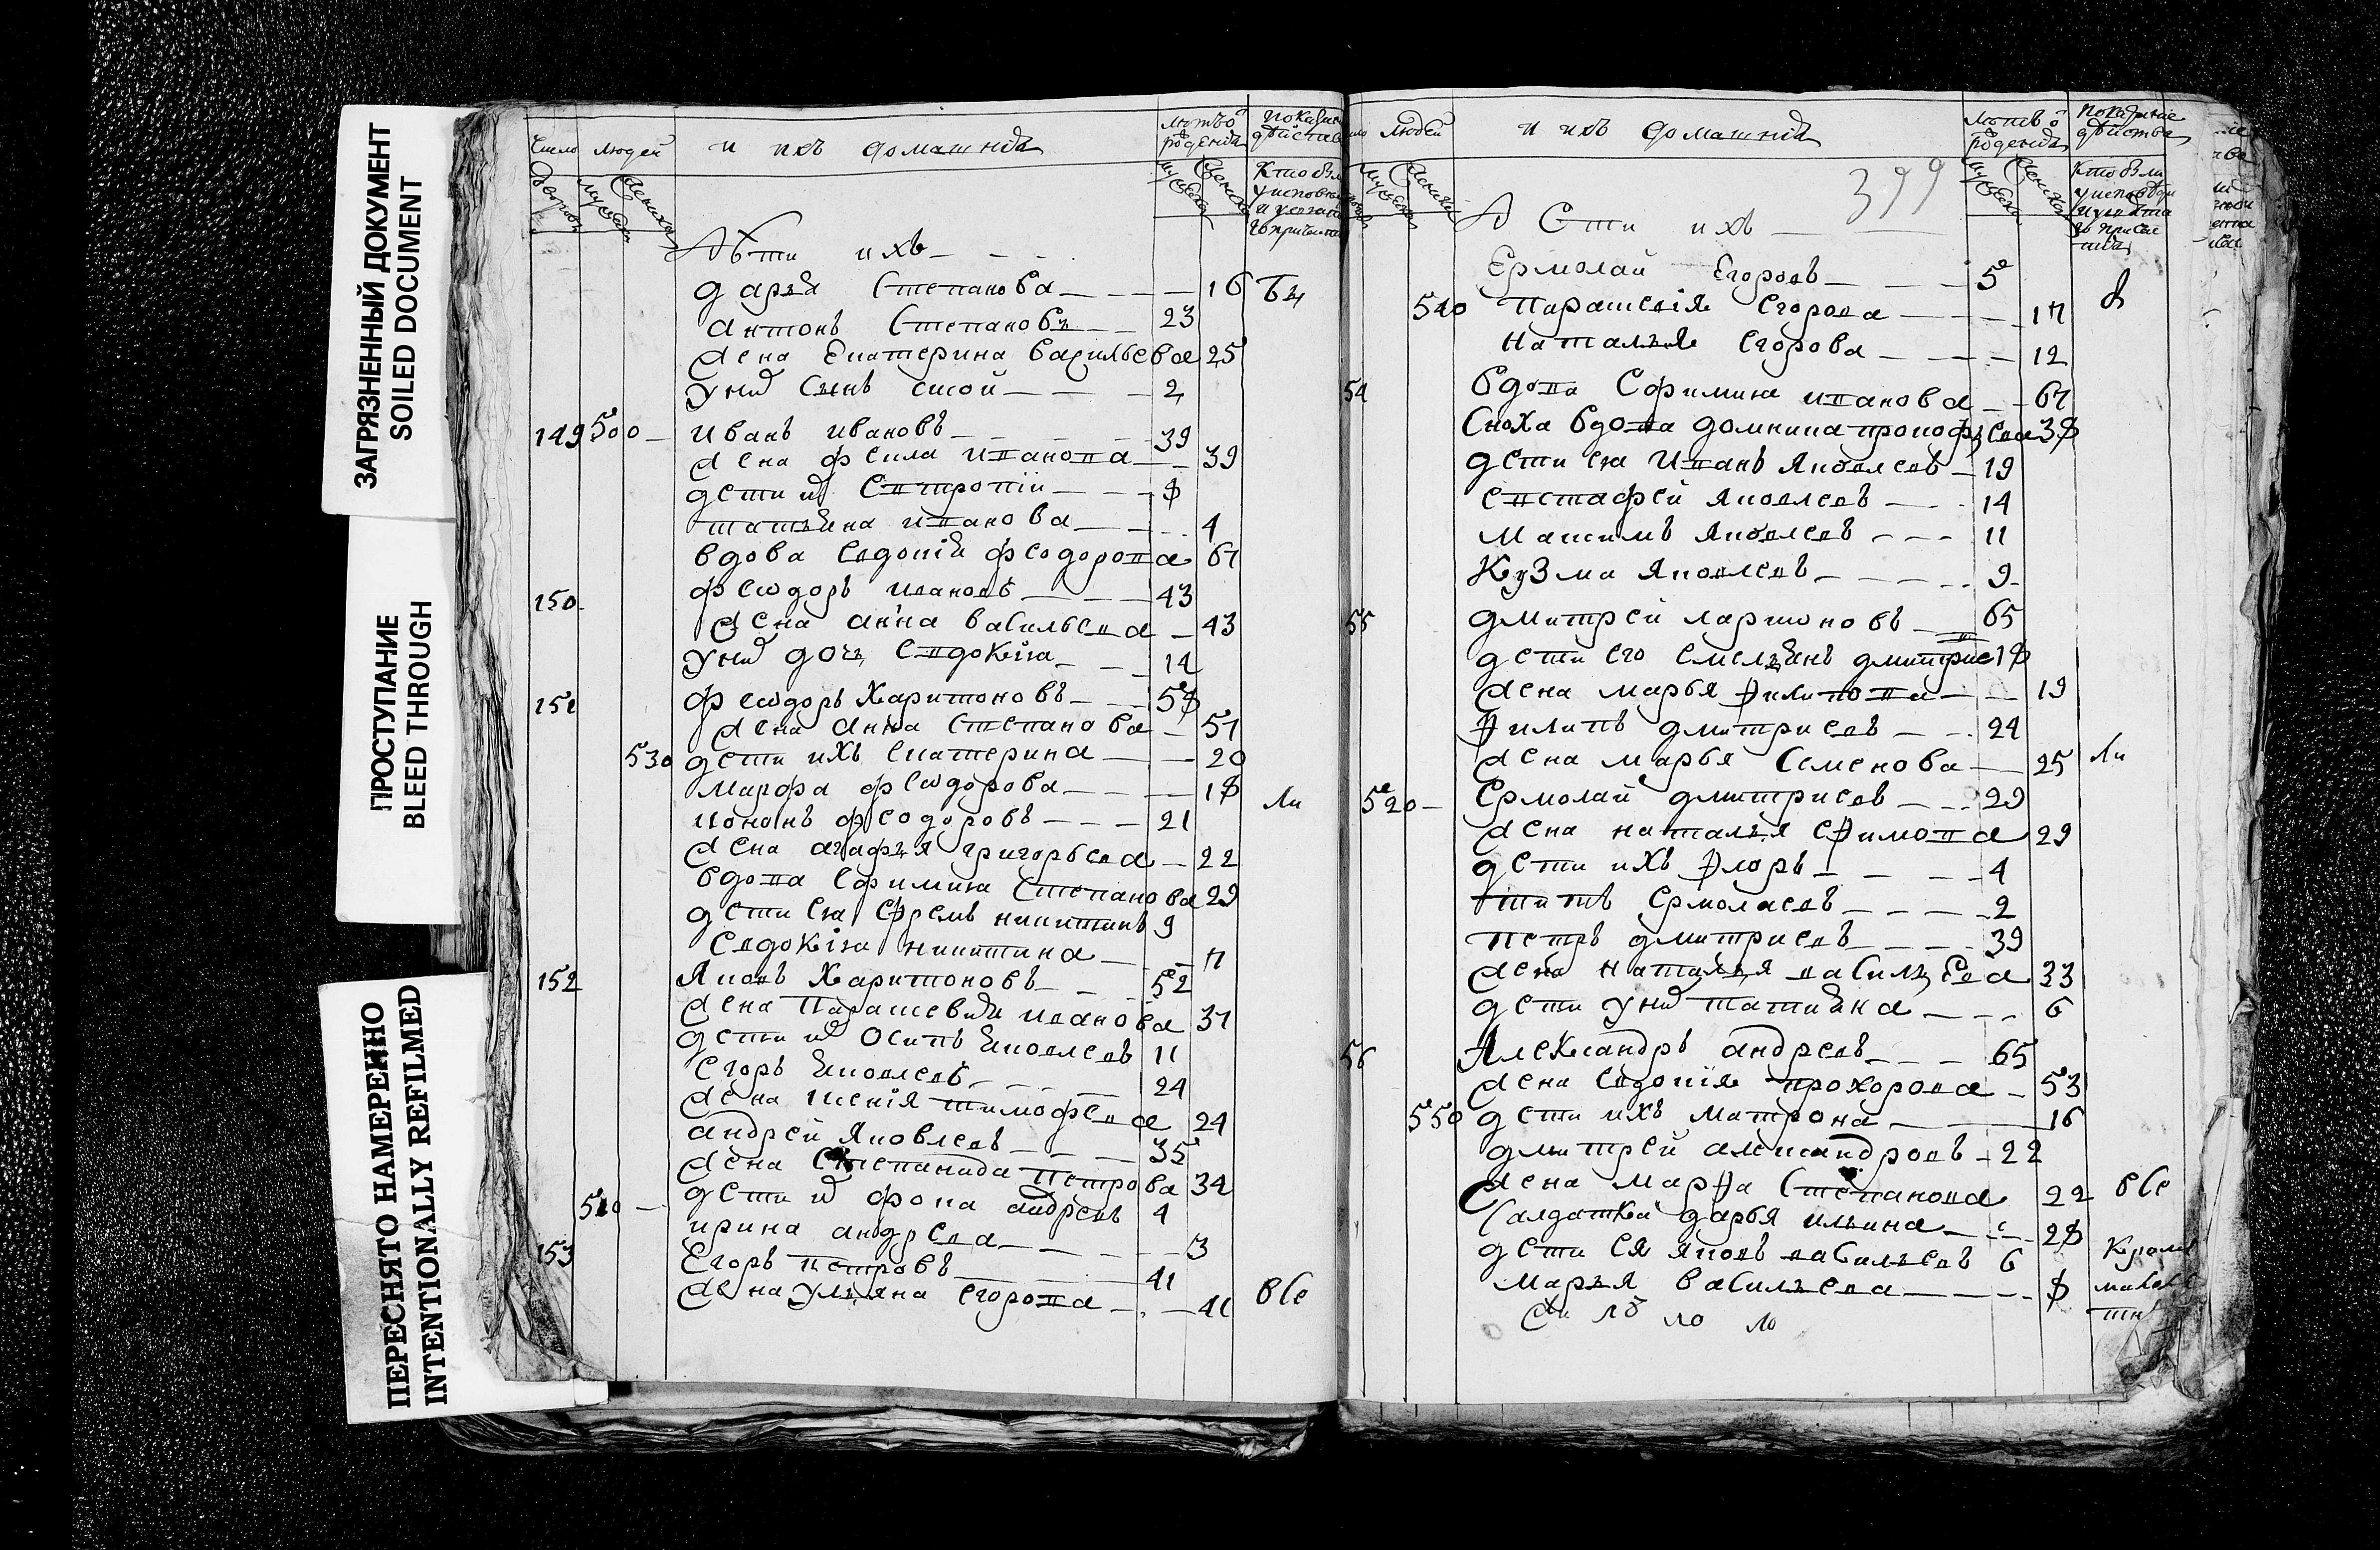 ЗАГРЯЗНЕННЫЙ ДОКУМЕНТ
SOILED DOCUMENT
ПРОСТУПАНИЕ
BLEED THROUGH
ПЕРЕСНЯТО НАМЕРЕННО
INTENTIONALLY REFILMED
число людей и ихъ домашнiя
Дети ихъ
дарья Степанова 16
Антонъ Степановъ 23
жена Екатерина Васильева 25
у них сынъ сисой 2
149 500 Иванъ ивановъ 39
жена фекла иванова 39
дети их Евтропiй 8
татьяна иванова 4
вдова Евдокiя феодорова 67
150 феодоръ ивановъ 43
жена анна васильева 43
у них дочь Евдокiя 14
151 феодоръ Харитоновъ 58
жена Анна Степанова 57
530 дети ихъ екатерина 20
марфа феодорова 18
кононъ феодоровъ 21
жена агафья григорьева 22
вдова Ефимия Степанова 29
дети ея Ефремъ никитинъ 9
Евдокiя никитина
152 Яковъ Харитоновъ 52
жена Парасковия иванова 37
дети их Осипъ яковлевъ 11
Егоръ яковлевъ 24
жена ксенiя тимофеева 24
андрей Яковлевъ 35
жена Степанида петрова 34
510 дети их фока андреевъ 4
ирина андреева 3
153 Егоръ петровъ 41
жена ульяна егорова 41 все
и ихъ домашнiя
399
Дети ихъ
Ермолай Егоровъ 5
540 Парасковiя Егорова 17
Наталья Егорова 12
54 вдова Ефимия иванова 67
сноха вдова домникия прокофьева 38
дети ея Иванъ Яковлевъ 19
Евстафей Яковлевъ 14
Максимъ Яковлевъ 11
Кузма Яковлевъ 9
55 дмитрей ларионовъ 65
дети его емельянъ дмитрие 18
жена марья Филипова 19
Филипъ дмитриевъ 24
жена марья Семенова 25
520 Ермолай дмитриевъ 29
жена наталья Ефимова 29
дети ихъ Флоръ 4
титъ Ермолаевъ 2
петръ дмитриевъ 39
жена Наталья васильева 33
дети у них татияна 6
56 Александръ андреевъ 65
жена Евдокiя прохорова 53
550 дети ихъ матрона 16
дмитрей александровъ 22
жена марфа Степанова 22 все
Салдатка дарья ильина 28
дети ея яковъ васильевъ 6
марья васильева 8